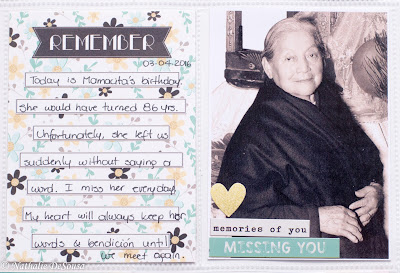 REMEMBER
03-04-2016
Today is Mamacita's birthday.
She would have turned 86 yrs.
Unfortunately, she left us
suddenly without saying a
word. I miss her everyday.
My heart will always keep her
words & bendición until
we meet again.
memories of you
MISSING YOU